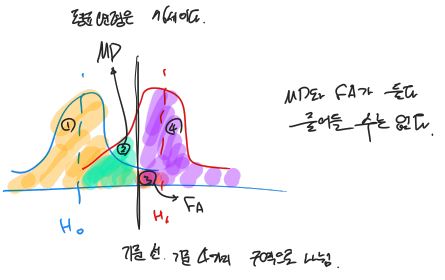 MD
①
②
③
④
H₀
H₁
FA
MD와 FA가 둘다
줄어들 수는 없다.
기준 선. 기준 4가지 구역으로 나뉨.